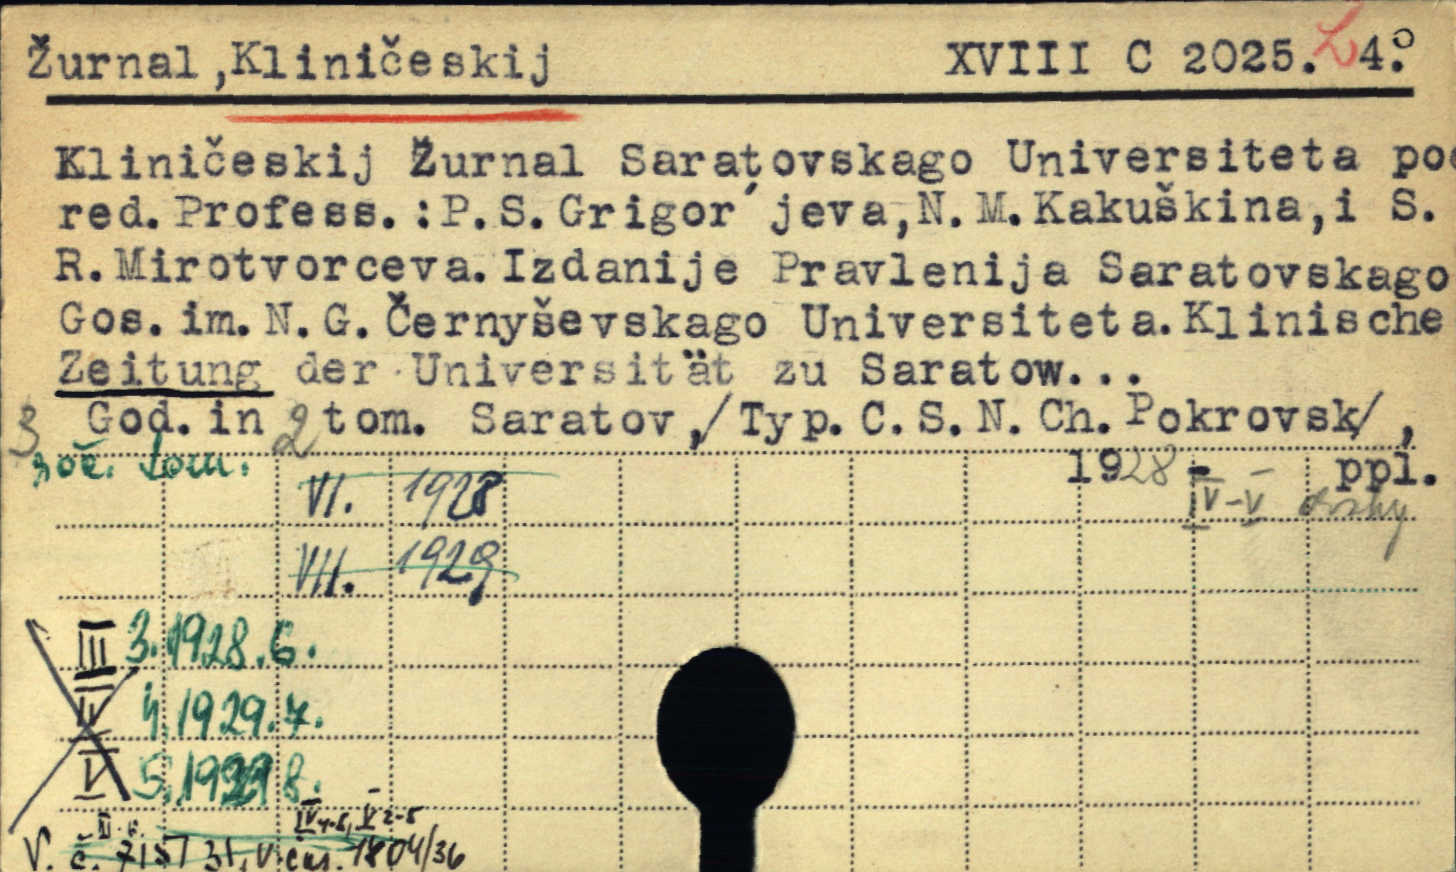 Žurnal,Kliničeskij XVIII C 2025.Z 4.º
Kliničeskij Žurnal Saratovskago Universiteta pod
red.Profess.:P.S.Grigor´jeva,N.M.Kakuškina,i S.
R.Mirotvorceva.Izdanije Pravlenija Saratovskago
Gos.im.N.G.Černyševskago Universiteta.Klinische
Zeitung der Universität zu Saratow...
3 God.in 2 tom. Saratov,/Typ.C.S.N.Ch.Pokrovsk/,
roč. tom. 1928 - ppl.
VI. 1928 IV-V
VII. 1929
III 3.1928.6.
IV 4.1929.7.
V 5. 8.
IV 4-6, V 2-5
V. č. 31, V. 1804/36